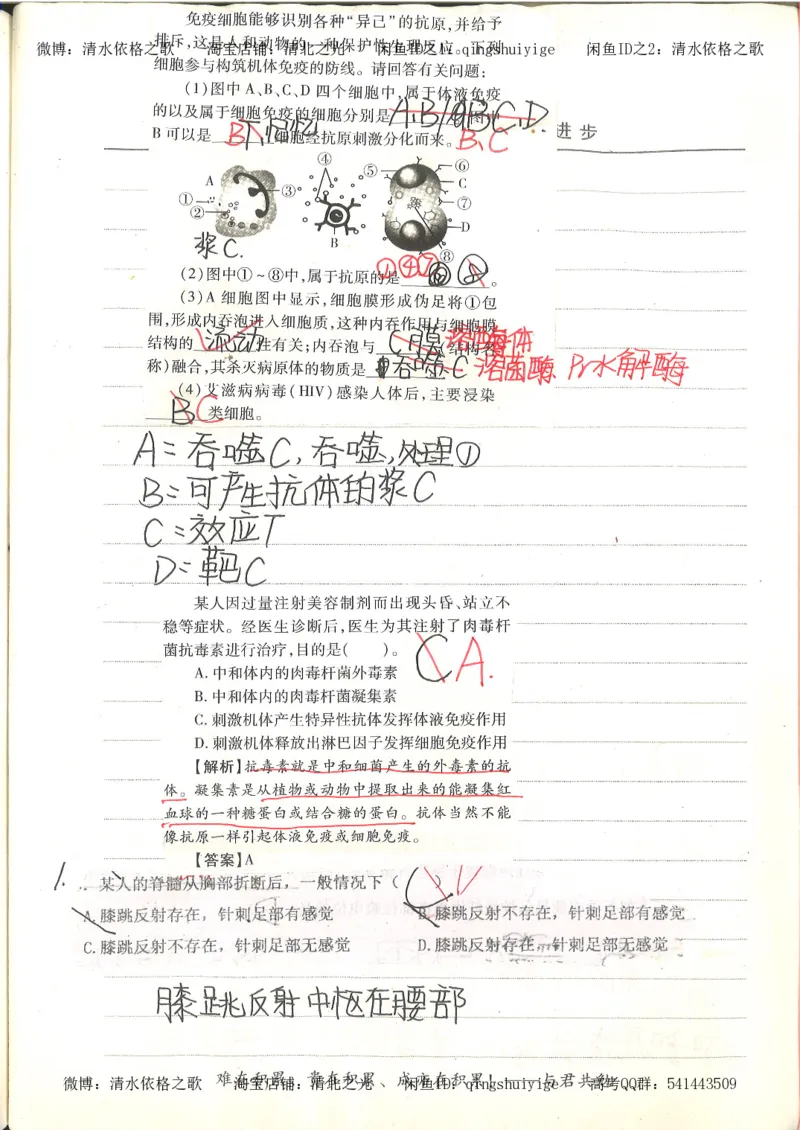 免疫细胞能够识别各种“异己”的抗原，并给予
排斥，这是人和动物的一种保护性生理反应。下列
微博：清水依格之歌 淘宝店铺：清北之光 闲鱼ID之1：qingshuiyige 闲鱼ID之2：清水依格之歌
细胞参与构筑机体免疫的防线。请回答有关问题：
(1)图中A、B、C、D四个细胞中，属于体液免疫
的以及属于细胞免疫的细胞分别是 A、B C、D
进步
B可以是 B、T、记忆 细胞经抗原刺激分化而来。 B、C
④ ⑤ ⑥
A ③ C
① ② ⑦
D
B ⑧
浆C.
(2)图中①~⑧中，属于抗原的是 ①④⑦ 。
(3)A细胞图中显示，细胞膜形成伪足将①包
围，形成内吞泡进入细胞质，这种内吞作用与细胞膜
结构的 流动 性有关；内吞泡与 C膜 (结构名 溶酶体
称)融合，其杀灭病原体的物质是 吞噬C 溶菌酶 Pr水解酶
(4)艾滋病病毒(HIV)感染人体后，主要浸染
B C 类细胞。
A=吞噬C，吞噬，处理①
B=可产生抗体的浆C
C=效应T
D=靶C
某人因过量注射美容制剂而出现头昏、站立不
稳等症状。经医生诊断后，医生为其注射了肉毒杆
菌抗毒素进行治疗，目的是( )。 C A.
A.中和体内的肉毒杆菌外毒素
B.中和体内的肉毒杆菌凝集素
C.刺激机体产生特异性抗体发挥体液免疫作用
D.刺激机体释放出淋巴因子发挥细胞免疫作用
【解析】抗毒素就是中和细菌产生的外毒素的抗
体。凝集素是从植物或动物中提取出来的能凝集红
血球的一种糖蛋白或结合糖的蛋白。抗体当然不能
像抗原一样引起体液免疫或细胞免疫。
【答案】A
1. 某人的脊髓从胸部折断后，一般情况下（ ）
A.膝跳反射存在，针刺足部有感觉 B.膝跳反射不存在，针刺足部有感觉
C.膝跳反射不存在，针刺足部无感觉 D.膝跳反射存在，针刺足部无感觉
膝跳反射中枢在腰部
难在积累、贵在积累、成亦在积累！ 与君共勉
微博：清水依格之歌 淘宝店铺：清北之光 闲鱼ID：qingshuiyige 高考QQ群：541443509